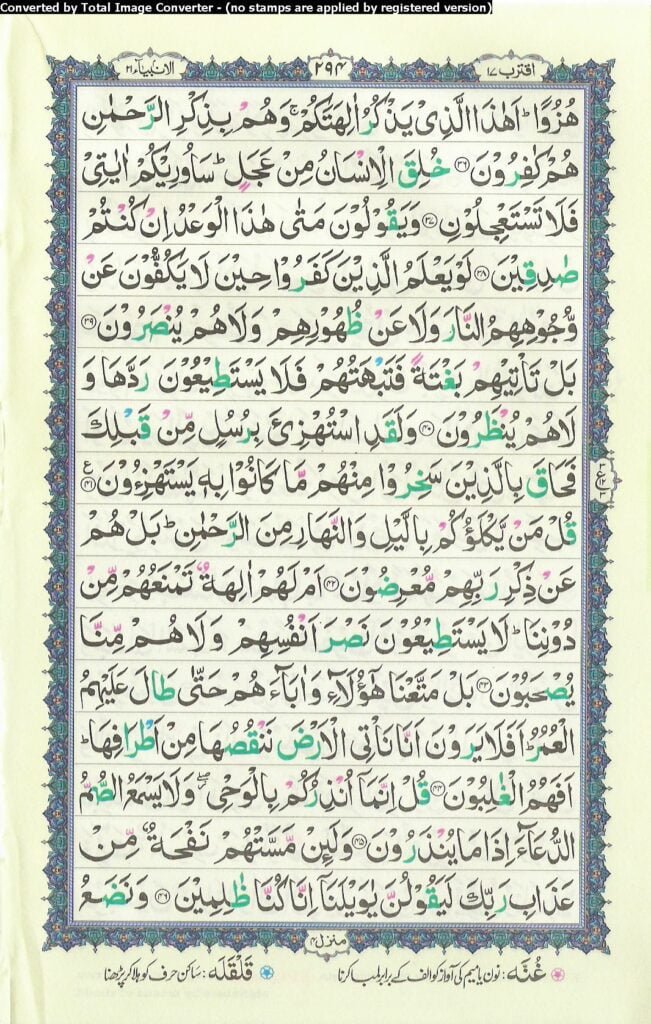 Converted by Total Image Converter - (no stamps are applied by registered version)
اقترب ۱۷
۲۹۴
الانبیآء ۲۱
هُزُوًا ؕ اَهٰذَا الَّذِیْ یَذْكُرُ اٰلِهَتَكُمْ ۚ وَهُمْ بِذِكْرِ الرَّحْمٰنِ
هُمْ كٰفِرُوْنَ ﴿۳۶﴾ خُلِقَ الْاِنْسَانُ مِنْ عَجَلٍ ؕ سَاُورِیْكُمْ اٰیٰتِیْ
فَلَا تَسْتَعْجِلُوْنِ ﴿۳۷﴾ وَیَقُوْلُوْنَ مَتٰی هٰذَا الْوَعْدُ اِنْ كُنْتُمْ
صٰدِقِیْنَ ﴿۳۸﴾ لَوْ یَعْلَمُ الَّذِیْنَ كَفَرُوْا حِیْنَ لَا یَكُفُّوْنَ عَنْ
وُّجُوْهِهِمُ النَّارَ وَلَا عَنْ ظُهُوْرِهِمْ وَلَا هُمْ یُنْصَرُوْنَ ﴿۳۹﴾
بَلْ تَاْتِیْهِمْ بَغْتَةً فَتَبْهَتُهُمْ فَلَا یَسْتَطِیْعُوْنَ رَدَّهَا وَ
لَا هُمْ یُنْظَرُوْنَ ﴿۴۰﴾ وَلَقَدِ اسْتُهْزِئَ بِرُسُلٍ مِّنْ قَبْلِكَ
فَحَاقَ بِالَّذِیْنَ سَخِرُوْا مِنْهُمْ مَّا كَانُوْا بِهٖ یَسْتَهْزِءُوْنَ ﴿۴۱﴾ ع
قُلْ مَنْ یَّكْلَؤُكُمْ بِالَّیْلِ وَالنَّهَارِ مِنَ الرَّحْمٰنِ ؕ بَلْ هُمْ
عَنْ ذِكْرِ رَبِّهِمْ مُّعْرِضُوْنَ ﴿۴۲﴾ اَمْ لَهُمْ اٰلِهَةٌ تَمْنَعُهُمْ مِّنْ
دُوْنِنَا ؕ لَا یَسْتَطِیْعُوْنَ نَصْرَ اَنْفُسِهِمْ وَلَا هُمْ مِّنَّا
یُصْحَبُوْنَ ﴿۴۳﴾ بَلْ مَتَّعْنَا هٰۤؤُلَآءِ وَاٰبَآءَهُمْ حَتّٰی طَالَ عَلَیْهِمُ
الْعُمُرُ ؕ اَفَلَا یَرَوْنَ اَنَّا نَاْتِی الْاَرْضَ نَنْقُصُهَا مِنْ اَطْرَافِهَا ؕ
اَفَهُمُ الْغٰلِبُوْنَ ﴿۴۴﴾ قُلْ اِنَّمَاۤ اُنْذِرُكُمْ بِالْوَحْیِ ۖ وَلَا یَسْمَعُ الصُّمُّ
الدُّعَآءَ اِذَا مَا یُنْذَرُوْنَ ﴿۴۵﴾ وَلَئِنْ مَّسَّتْهُمْ نَفْحَةٌ مِّنْ
عَذَابِ رَبِّكَ لَیَقُوْلُنَّ یٰوَیْلَنَاۤ اِنَّا كُنَّا ظٰلِمِیْنَ ﴿۴۶﴾ وَنَضَعُ
منزل ۴
غُنَّه: نون یا میم کی آواز کو الف کے برابر لمبا کرنا
قَلْقَلَه: ساکن حرف کو ہلا کر پڑھنا